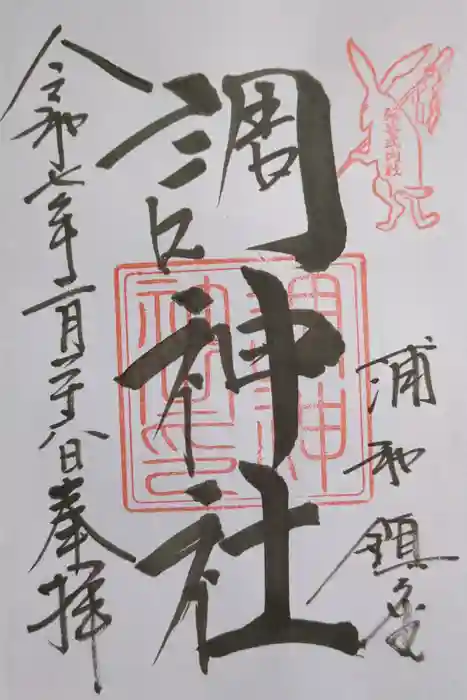 浦和鎮座
調神社
令和七年二月二十八日奉拝
調神
神社之印